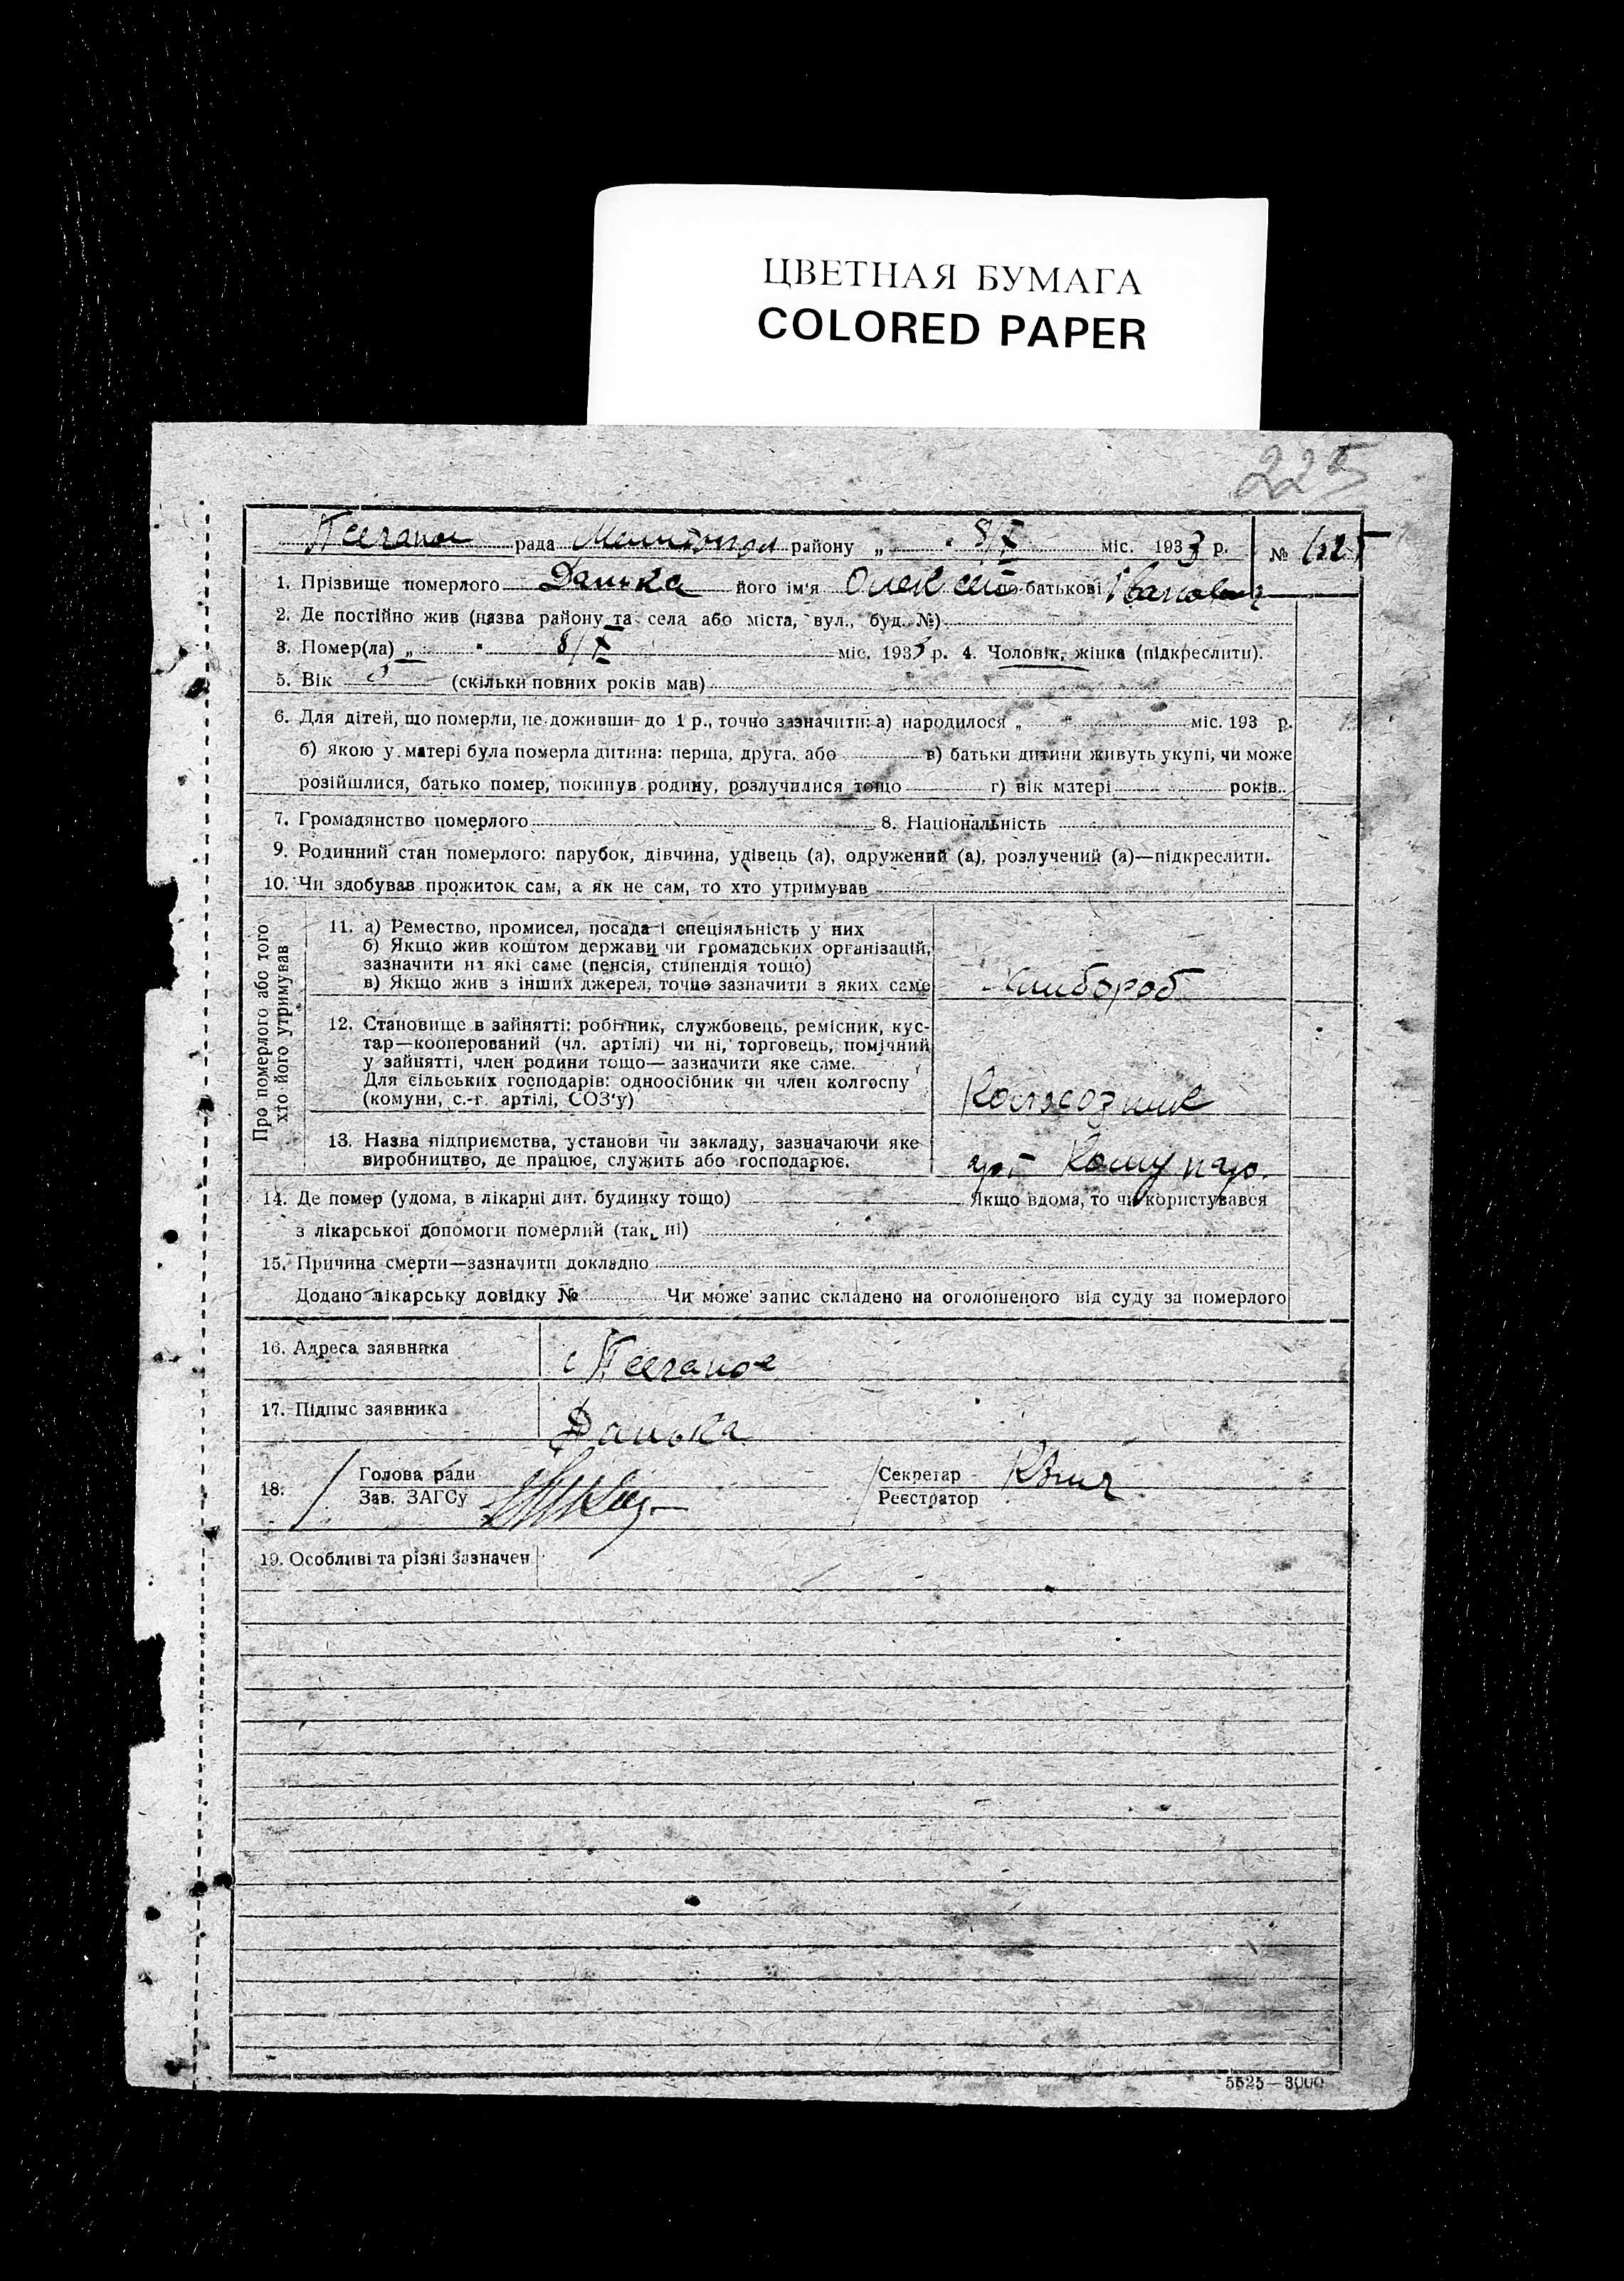 ЦВЕТНАЯ БУМАГА
COLORED PAPER
225
рада району „ " 8/X міс. 1933 р. №
1. Прізвище померлого Данька його ім'я Олексей по батькові Іванович
2. Де постійно жив (назва району та села або міста, вул., буд. №)
3. Помер(ла) „ " 8/X міс. 1933 р. 4. Чоловік, жінка (підкреслити).
5. Вік (скільки повних років мав)
6. Для дітей, що померли, не доживши до 1 р., точно зазначити: а) народилося „ " міс. 193 р.
б) якою у матері була померла дитина: перша, друга, або в) батьки дитини живуть укупі, чи може
розійшлися, батько помер, покинув родину, розлучилися тощо г) вік матері років
7. Громадянство померлого 8. Національність
9. Родинний стан померлого: парубок, дівчина, удівець (а), одружений (а), розлучений (а)—підкреслити.
10. Чи здобував прожиток сам, а як не сам, то хто утримував
Про померлого або того
хто його утримував
11. а) Ремество, промисел, посада і спеціяльність у них
б) Якщо жив коштом держави чи громадських організацій,
зазначити на які саме (пенсія, стипендія тощо)
в) Якщо жив з інших джерел, точно зазначити з яких саме
Хлибороб
12. Становище в зайнятті: робітник, службовець, ремісник, кус-
тар—кооперований (чл. артілі) чи ні, торговець, помічний
у зайнятті, член родини тощо—зазначити яке саме.
Для сільських господарів: одноосібник чи член колгоспу
(комуни, с.-г. артілі, СОЗ'у)
Колхозник
13. Назва підприємства, установи чи закладу, зазначаючи яке
виробництво, де працює, служить або господарює.
арт Комунар.
14. Де помер (удома, в лікарні дит. будинку тощо) Якщо вдома, то чи користувався
з лікарської допомоги померлий (так, ні)
15. Причина смерти—зазначити докладно
Додано лікарську довідку № Чи може запис складено на оголошеного від суду за померлого
16. Адреса заявника с
17. Підпис заявника Данька
18. Голова ради Секретар
Зав. ЗАГСу Реєстратор
19. Особливі та різні зазначен
5525—3000